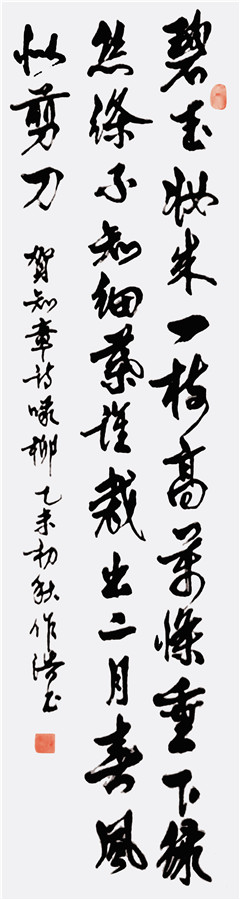 碧玉妝成一樹高萬條垂下綠
絲絛不知細葉誰裁出二月春風
似剪刀 賀知章詩咏柳 乙未初秋作